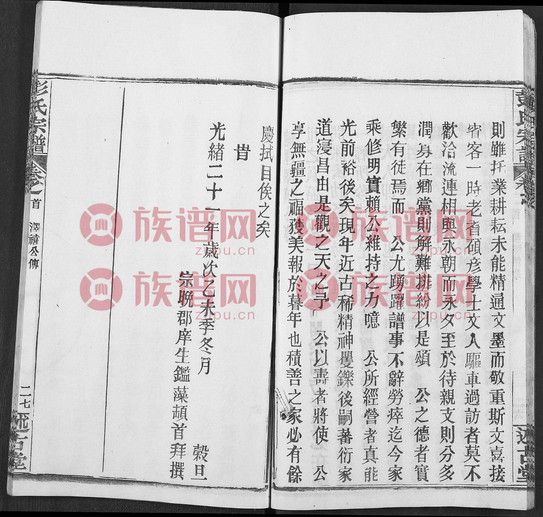 則雖托業耕耘未能精通文墨而敬重斯文喜接
賓客一時老者碩彥學士文人驅車過訪者莫不
歡洽流連相與永朝而永夕至於待親支則分多
潤身在鄉黨則解難排紛以是頌　公之德者實
樂有徒焉而　公尤踴躍譜事不辭勞瘁迄今家
乘修明實賴公維持之力噫　公所經營者真能
光前裕後矣現年近古稀精神矍鑠後嗣蕃衍家
道寖昌由是觀之天之予　公以壽者將使　公
享無疆之福獲美報於暮年也積善之家必有餘
慶拭目俟之矣
旹
光緒二十一年歲次乙未季冬月　穀旦
宗晚郡庠生鑑藻頓首拜撰
彭氏宗譜
卷之首
澤禎公傳
二七
述古堂
族谱网
zupu.cn
族谱网
zupu.cn
族谱网
zupu.cn
族谱网
zupu.cn